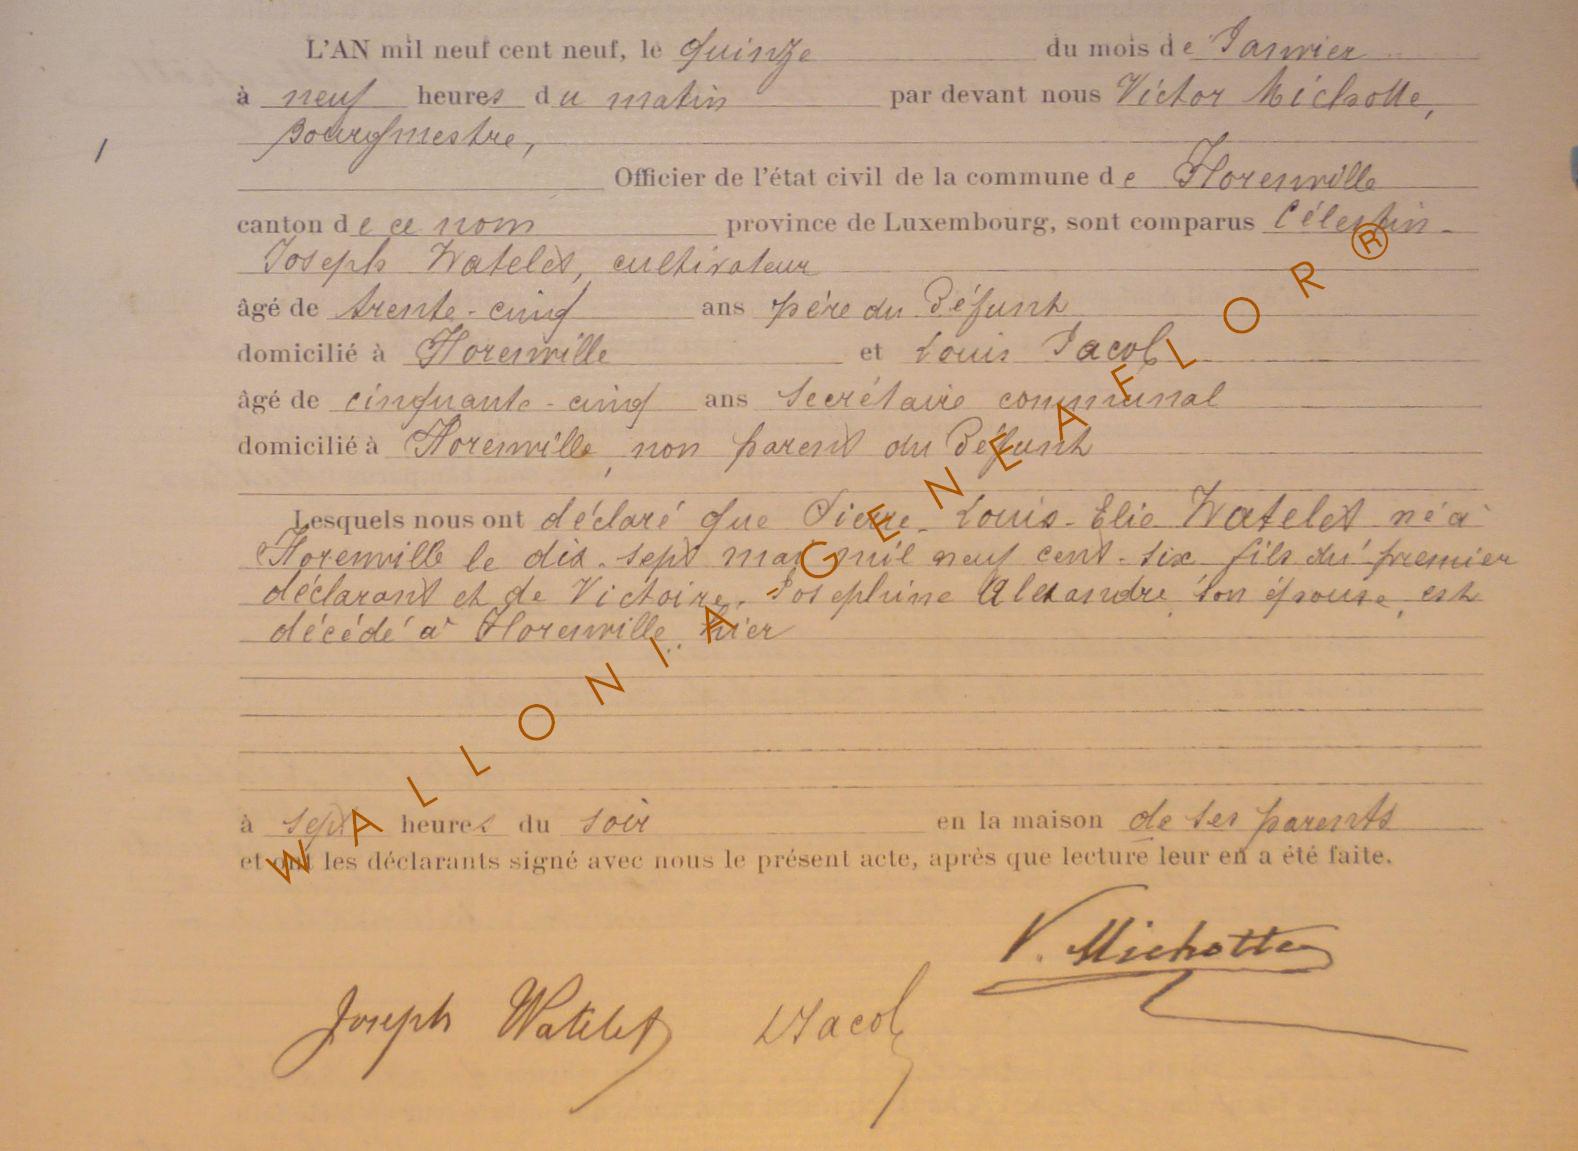 L'AN mil neuf cent neuf, le quinze du mois de Janvier
à neuf heures du matin par devant nous Victor Michotte,
Bourgmestre,
Officier de l'état civil de la commune de Florenville
canton de ce nom province de Luxembourg, sont comparus Célestin-
Joseph Watelet, cultivateur
âgé de trente-cinq ans père du Défunt
domicilié à Florenville et Louis Jacob
âgé de cinquante-cinq ans Secrétaire communal
domicilié à Florenville, non parent du Défunt
Lesquels nous ont déclaré que Pierre-Louis-Elie Watelet né à
Florenville le dix-sept mai mil neuf cent-six fils du premier
déclarant et de Victoire-Josephine Alexandre, son épouse, est
décédé à Florenville, hier
à sept heures du soir en la maison de ses parents
et ont les déclarants signé avec nous le présent acte, après que lecture leur en a été faite.
V. Michotte
Joseph Watelet LJacob
WALLONIA-GENEAFLOR®